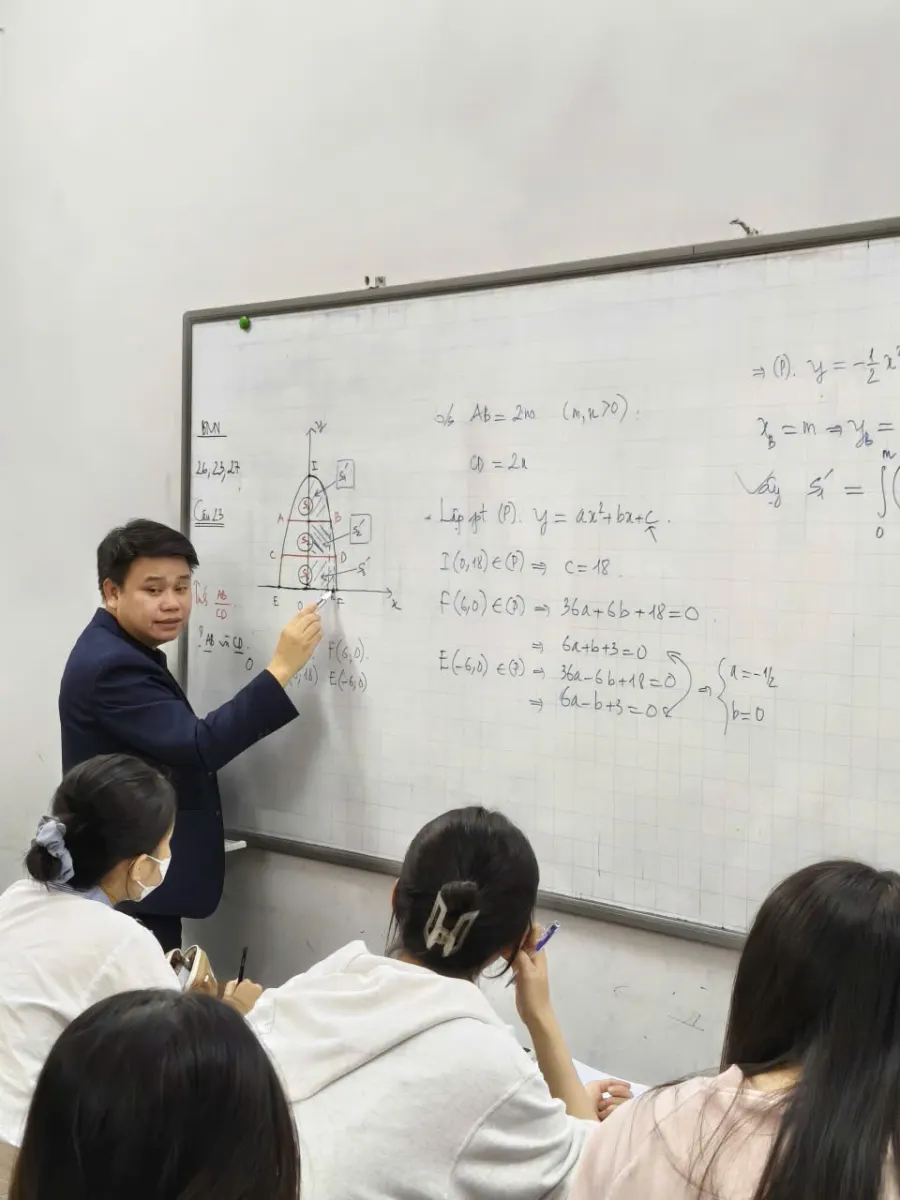 BNN
26, 23, 27
Câu 23
AB
CD
? AB và CD.
y
I
S₁'
S₁
A
B
S₂'
S₂
C
D
E
F
x
F(6,0).
E(-6,0)
AB = 2m (m,n>0).
CD = 2n
- Lập pt (P). y = ax²+bx+c.
I(0,18)∈(P) ⇒ c=18.
F(6,0)∈(P) ⇒ 36a+6b+18=0.
⇒ 6a+b+3=0
E(-6,0) ∈(P) ⇒ 36a-6b+18=0
⇒ 6a-b+3=0
⇒ { a=-1/2
b=0
⇒ (P). y = -1/2 x²
x_B = m ⇒ y_B =
Vậy S₁' = ∫₀ᵐ (